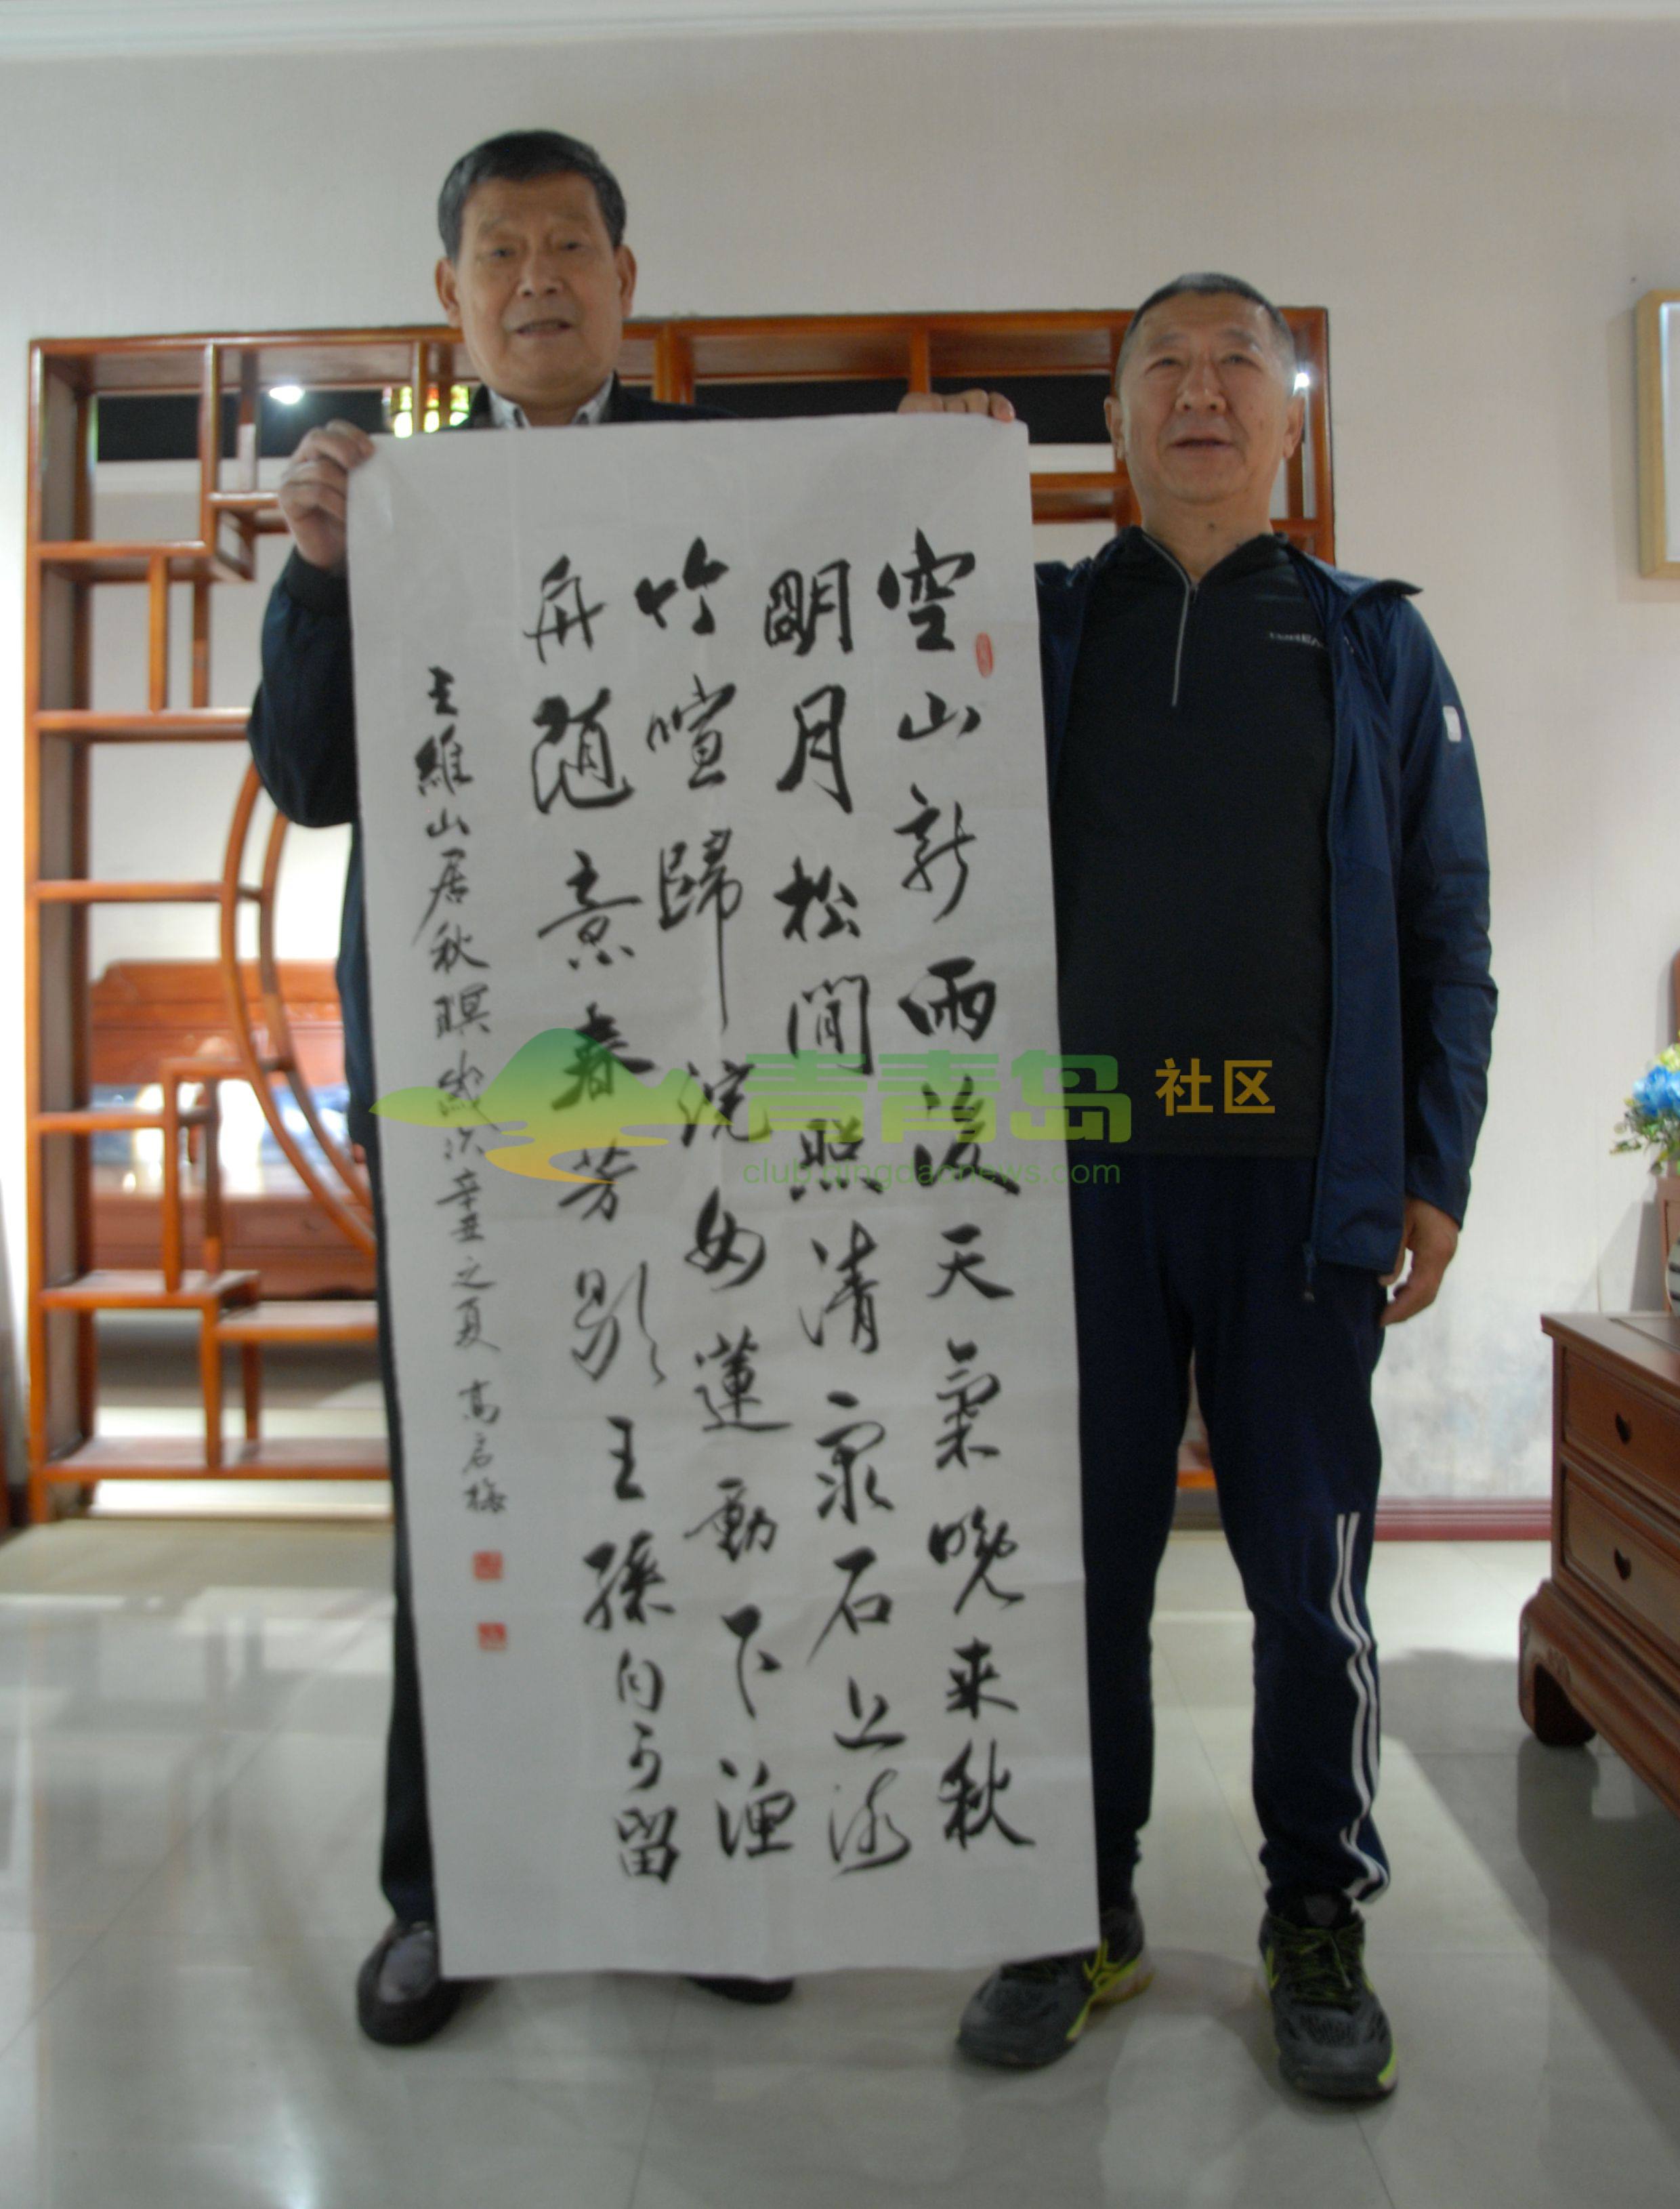 空山新雨後天氣晚來秋
明月松間照清泉石上流
竹喧歸浣女蓮動下漁
舟隨意春芳歇王孫自可留
王維山居秋暝歲次辛丑之夏
青青岛 社区
club.qingdaonews.com